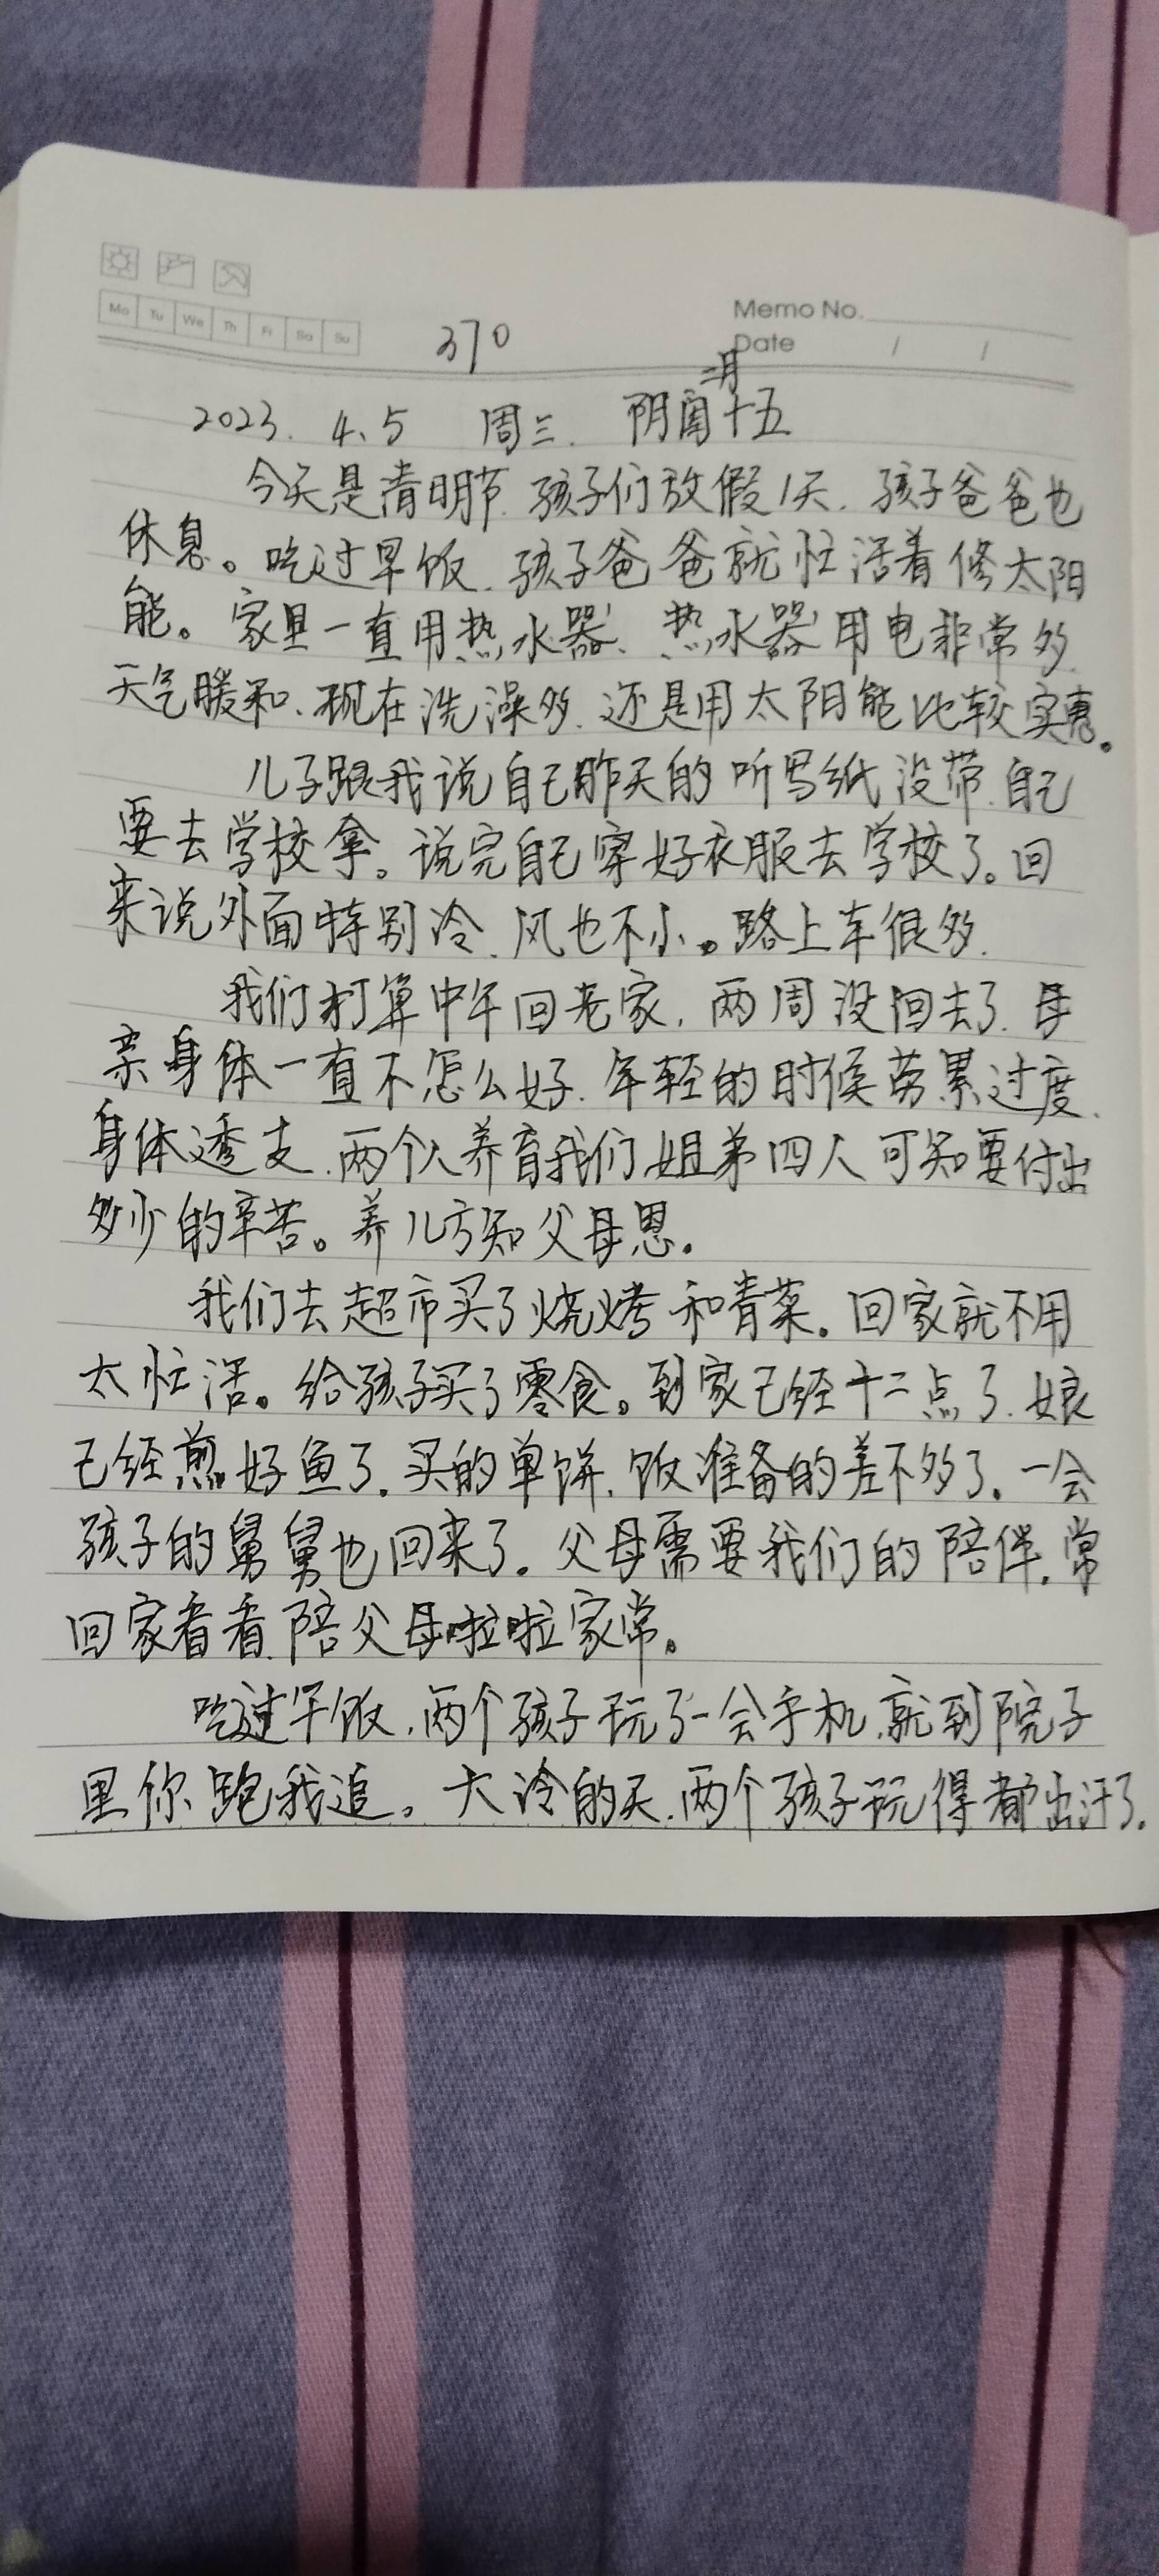 Memo No.
Mo Tu We Th Fr Sa Su
370
Date / /
二月
2023. 4.5 周三. 阴闰十五
今天是清明节.孩子们放假1天.孩子爸爸也
休息。吃过早饭.孩子爸爸就忙活着修太阳
能。家里一直用热水器、热水器用电非常多.
天气暖和、现在洗澡多.还是用太阳能比较实惠。
儿子跟我说自己昨天的听写纸没带.自己
要去学校拿。说完自己穿好衣服去学校了。回
来说外面特别冷.风也不小。路上车很多.
我们打算中午回老家.两周没回去了.母
亲身体一直不怎么好.年轻的时候劳累过度.
身体透支.两个人养育我们姐弟四人可知要付出
多少的辛苦。养儿方知父母恩.
我们去超市买了烧烤和青菜.回家就不用
太忙活。给孩子买了零食。到家已经十二点了.娘
已经煎好鱼了.买的单饼.饭准备的差不多了.一会
孩子的舅舅也回来了.父母需要我们的陪伴.常
回家看看.陪父母啦啦家常。
吃过午饭.两个孩子玩了一会手机.就到院子
里你跑我追。大冷的天.两个孩子玩得都出汗了.